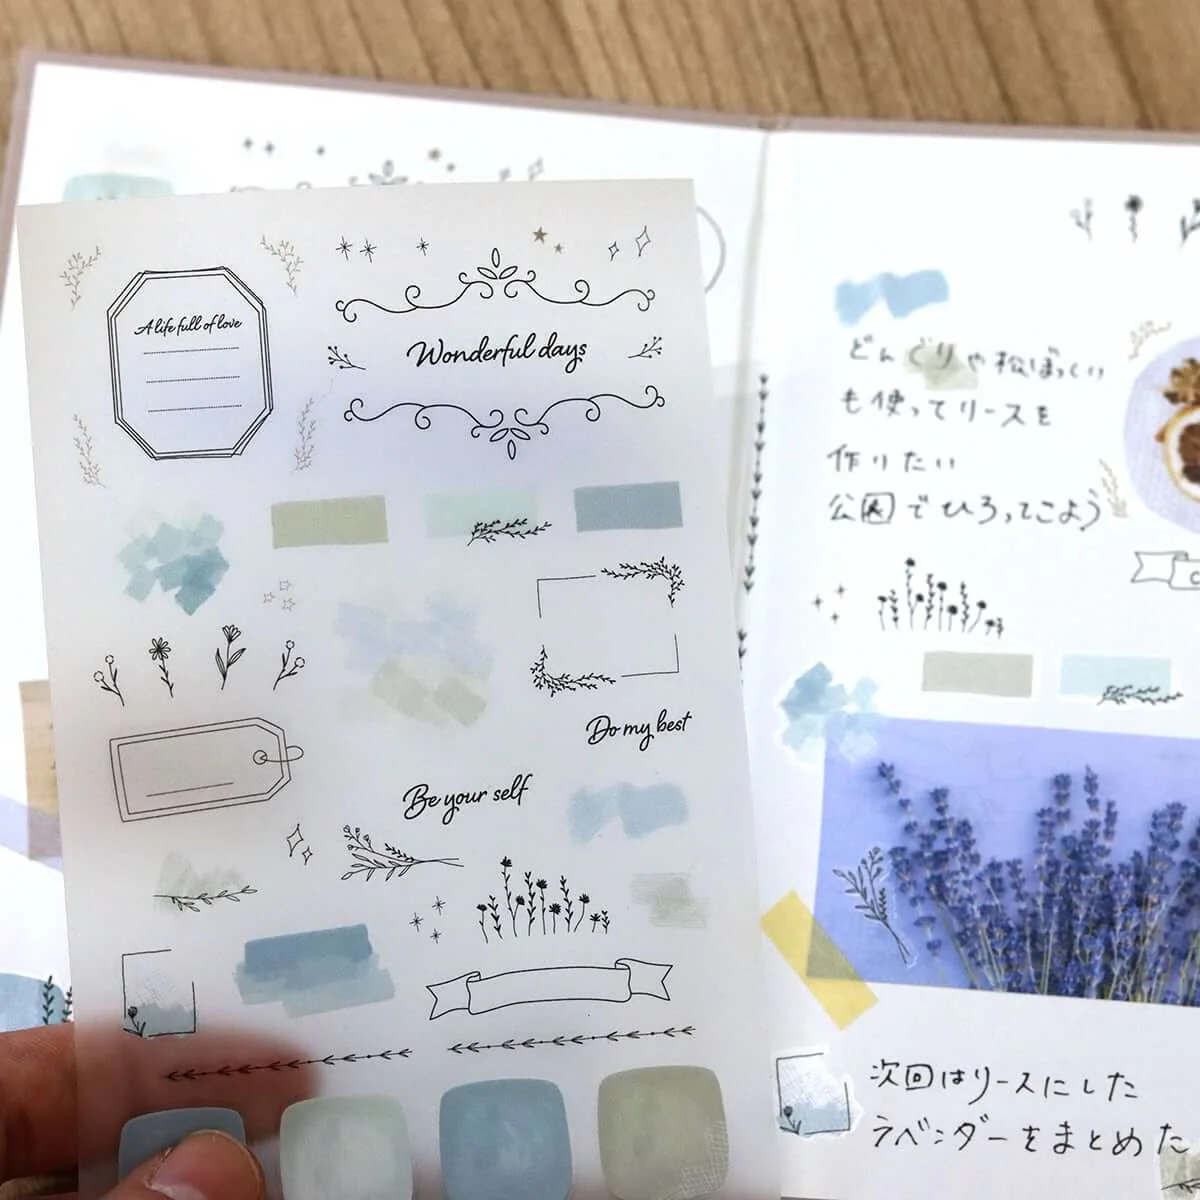 A life full of love
Wonderful days
Do my best
Be your self
どんぐりや松ぼっくり
も使ってリースを
作りたい
公園でひろってこよう
次回はリースにした
ラベンダーをまとめた